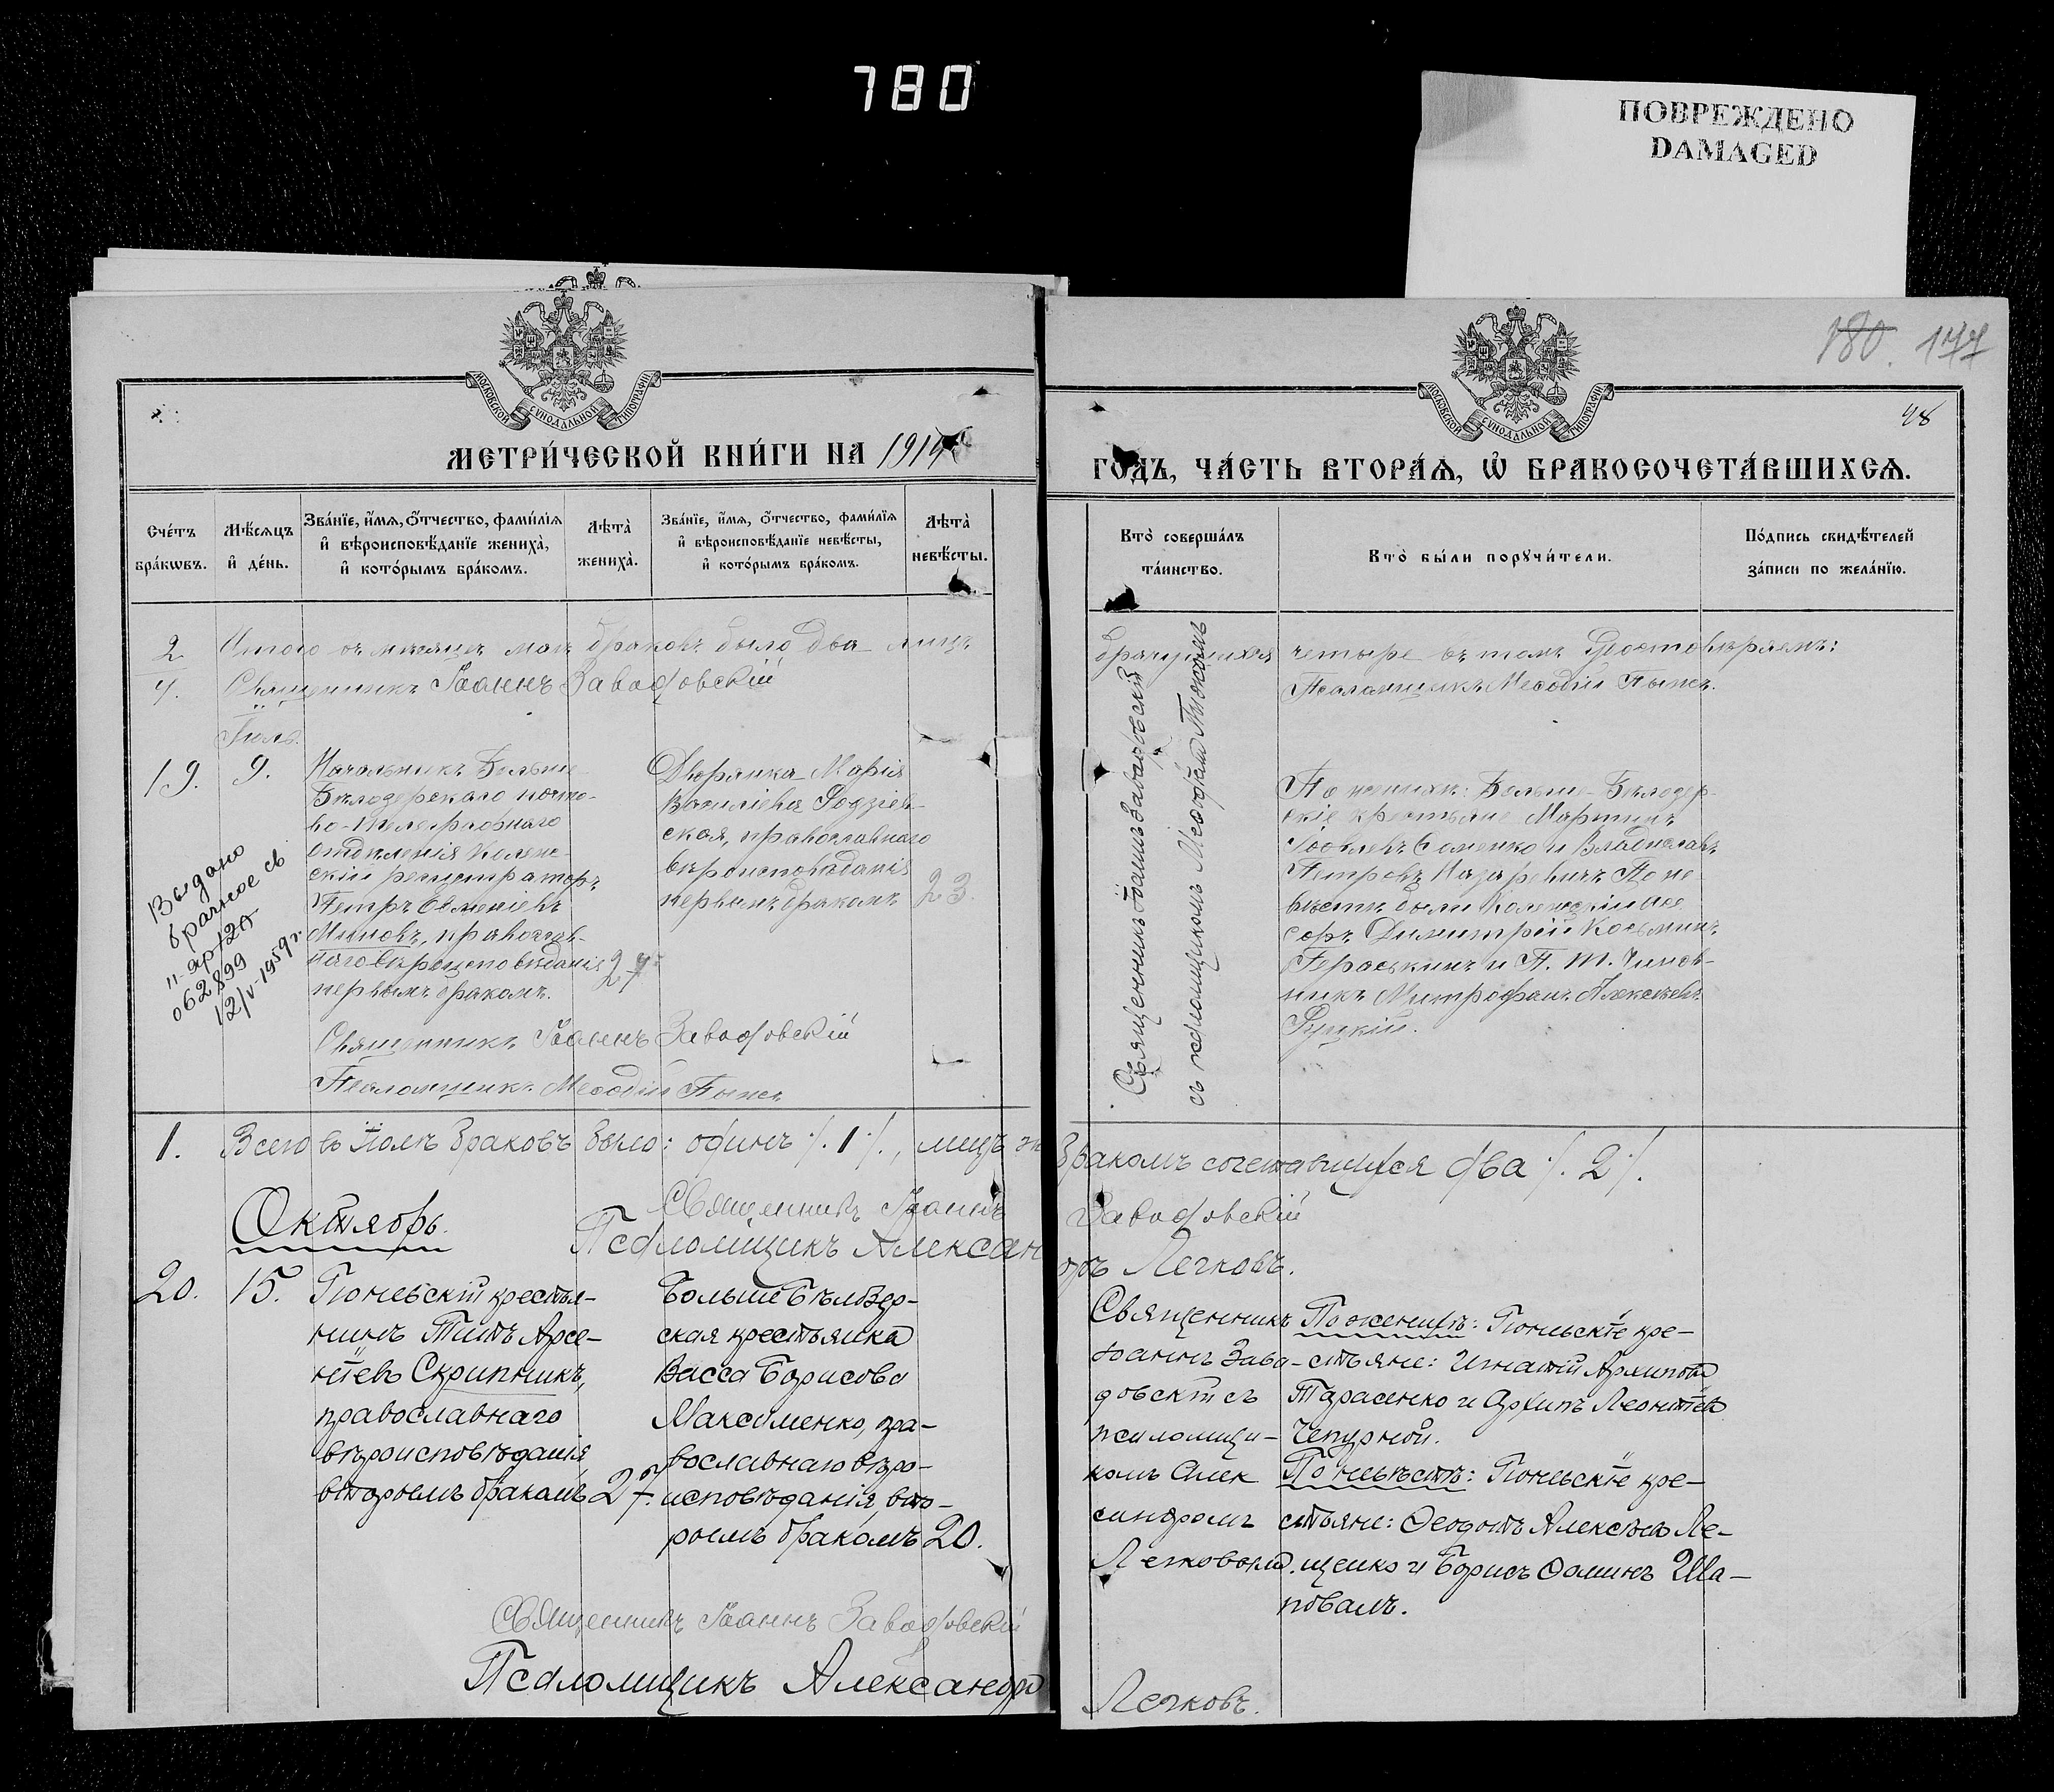 780
ПОВРЕЖДЕНО
DAMAGED
180. 177
48
МОСКОВСКОЙ СѴНОДАЛЬНОЙ ТИПОГРАФІИ
МОСКОВСКОЙ СѴНОДАЛЬНОЙ ТИПОГРАФІИ
МЕТРИ́ЧЕСКОЙ КНИ́ГИ НА 1914
ГОДЪ, ЧА́СТЬ ВТОРА́Ѧ, Ѡ҆ БРАКОСОЧЕТА́ВШИХСѦ.
Сче́тъ бра́кѡвъ.
Мѣ́сѧцъ и҆ де́нь.
Зва́нїе, и҆́мѧ, ѻ҆́тчество, фами́лїѧ
и҆ вѣроисповѣ́данїе жениха̀,
и҆ кото́рымъ бра́комъ.
Лѣта̀ жениха̀.
Зва́нїе, и҆́мѧ, ѻ҆́тчество, фами́лїѧ
и҆ вѣроисповѣ́данїе невѣ́сты,
и҆ кото́рымъ бра́комъ.
Лѣта̀ невѣ́сты.
Кто̀ соверша́лъ
та́инство.
Кто̀ бы́ли порꙋчи́тели.
По́дпись свидѣ́телей
за́писи по жела́нїю.
2 Итого въ мѣсяцѣ маѣ браковъ было два лицъ
брачущихся четыре въ томъ Удостовѣряемъ:
4. Священникъ Іоаннъ Завадовскій
Псаломщикъ Меѳодій
Іюль.
19. 9. Начальникъ Больше-
Бѣлозерскаго почто-
во-телеграфнаго
отдѣленія Коллеж-
скій регистраторъ
Петръ Евменіевъ
Миновъ, православ-
наго вѣроисповѣданія 27
первымъ бракомъ.
Выдано
брачное св
II-ЯР 120
062899
12/V-1959 г.
Дворянка Марія
Василіева
ская, православнаго
вѣроисповѣданія
первымъ бракомъ 23.
Священникъ Іоаннъ Завадовскій
съ псаломщикомъ Меѳодіемъ
По женихѣ: Больше-Бѣлозер-
скіе крестьяне Мартинъ
Іовлевъ Соменко и Владиславъ
Петровъ Назаревичъ. По не-
вѣстѣ были Коллежскій
Димитрій Косьминъ
Гераськинъ и П. Т. Чинов-
никъ Митрофанъ Алексѣевъ
Священникъ Іоаннъ Завадовскій
Псаломщикъ Меѳодій
1. Всего въ Іюлѣ браковъ было: одинъ /. 1 /., лицъ же
бракомъ сочетавшихся два /. 2 /.
Священникъ Іоаннъ
Завадовскій
Псаломщикъ Алексан
дръ Легковъ.
Октябрь.
20. 15. Гюневскій крестья-
нинъ Титъ Арсе-
ніевъ Скрипникъ,
православнаго
вѣроисповѣданія
вторымъ бракомъ 27.
Больше Бѣлозер-
ская крестьянка
Васса Борисова
Максименко, пра-
вославнаго вѣро-
исповѣданія, вто-
рымъ бракомъ 20.
Священникъ
Іоаннъ Зава-
довскій съ
псаломщи-
комъ Алек
сандромъ
Легковымъ.
По женихѣ: Гюневскіе кре-
стьяне: Игнатій Архиповъ
Тарасенко и Архипъ Леонтіевъ
Чепурной.
По невѣстѣ: Гюневскіе кре-
стьяне: Ѳеодотъ Алексѣевъ Ле-
щенко и Борисъ Ѳоминъ Ша-
повалъ.
Священникъ Іоаннъ Завадовскій
Псаломщикъ Александръ
Легковъ.